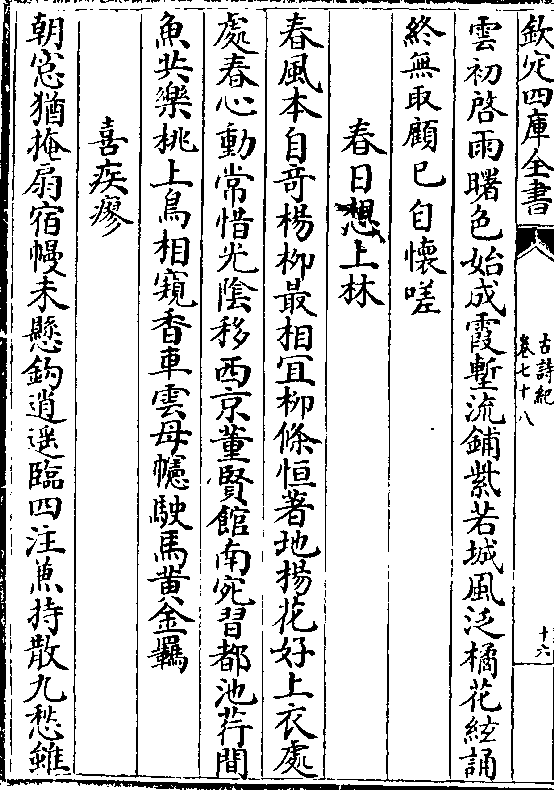 欽定四庫全書
古詩紀
卷七十八
十六
雲初啓雨曙色始成霞塹流鋪紫若城風泛橘花絃誦
終無取顧已自懷嗟
春日想上林
春風本自竒楊栁最相宜栁條恒著地楊花好上衣處
處春心動常惜光陰移西京董賢館南宛習都池荇間
魚共樂桃上鳥相窺香車雲母幰駛馬黄金羈
喜疾瘳
朝窓猶掩扇宿幔未懸鈎逍遥臨四注兼持散九愁雖